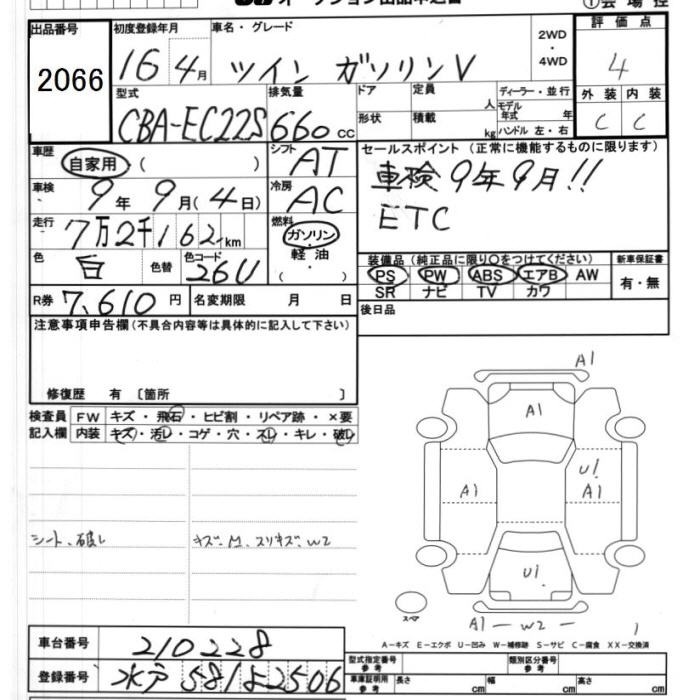 出品番号 2066
初度登録年月 16 4月
車名・グレード ツイン ガソリンV
2WD・4WD
評価点 4
外装 内装
C C
型式 CBA-EC22S
排気量 660cc
ドア 定員 人
形状 積載 kg
ディーラー・並行
モデル年式 年
ハンドル 左・右
車歴 自家用 ( )
シフト AT
車検 9年9月(4日)
冷房 AC
走行 7万2千162km
燃料 ガソリン・軽油・( )
色 白 色替 色コード 26U
R券 7,610円 名変期限 月 日
セールスポイント (正常に機能するものに限ります)
車検9年9月!!
ETC
装備品 (純正品に限り○をつけてください) 新車保証書
PS PW ABS エアB AW 有・無
SR ナビ TV カワ
後日品
注意事項申告欄(不具合内容等は具体的に記入して下さい)
修復歴 有 〔箇所 〕
検査員 FW キズ・飛石・ヒビ割・リペア跡・×要
記入欄 内装 キズ・汚レ・コゲ・穴・スレ・キレ・破レ
シート、破レ
キズ・M、スリキズ、W2
A1
A1
U1
A1 A1
U1
スペア
A1 — W2 —
1
A−キズ E−エクボ U−凹み W−補修跡 S−サビ C−腐食 XX−交換済
車台番号 210228
登録番号 水戸581 2506
型式指定番号 参考 類別区分番号 参考
車庫証明用 参考 長さ cm 幅 cm 高さ cm